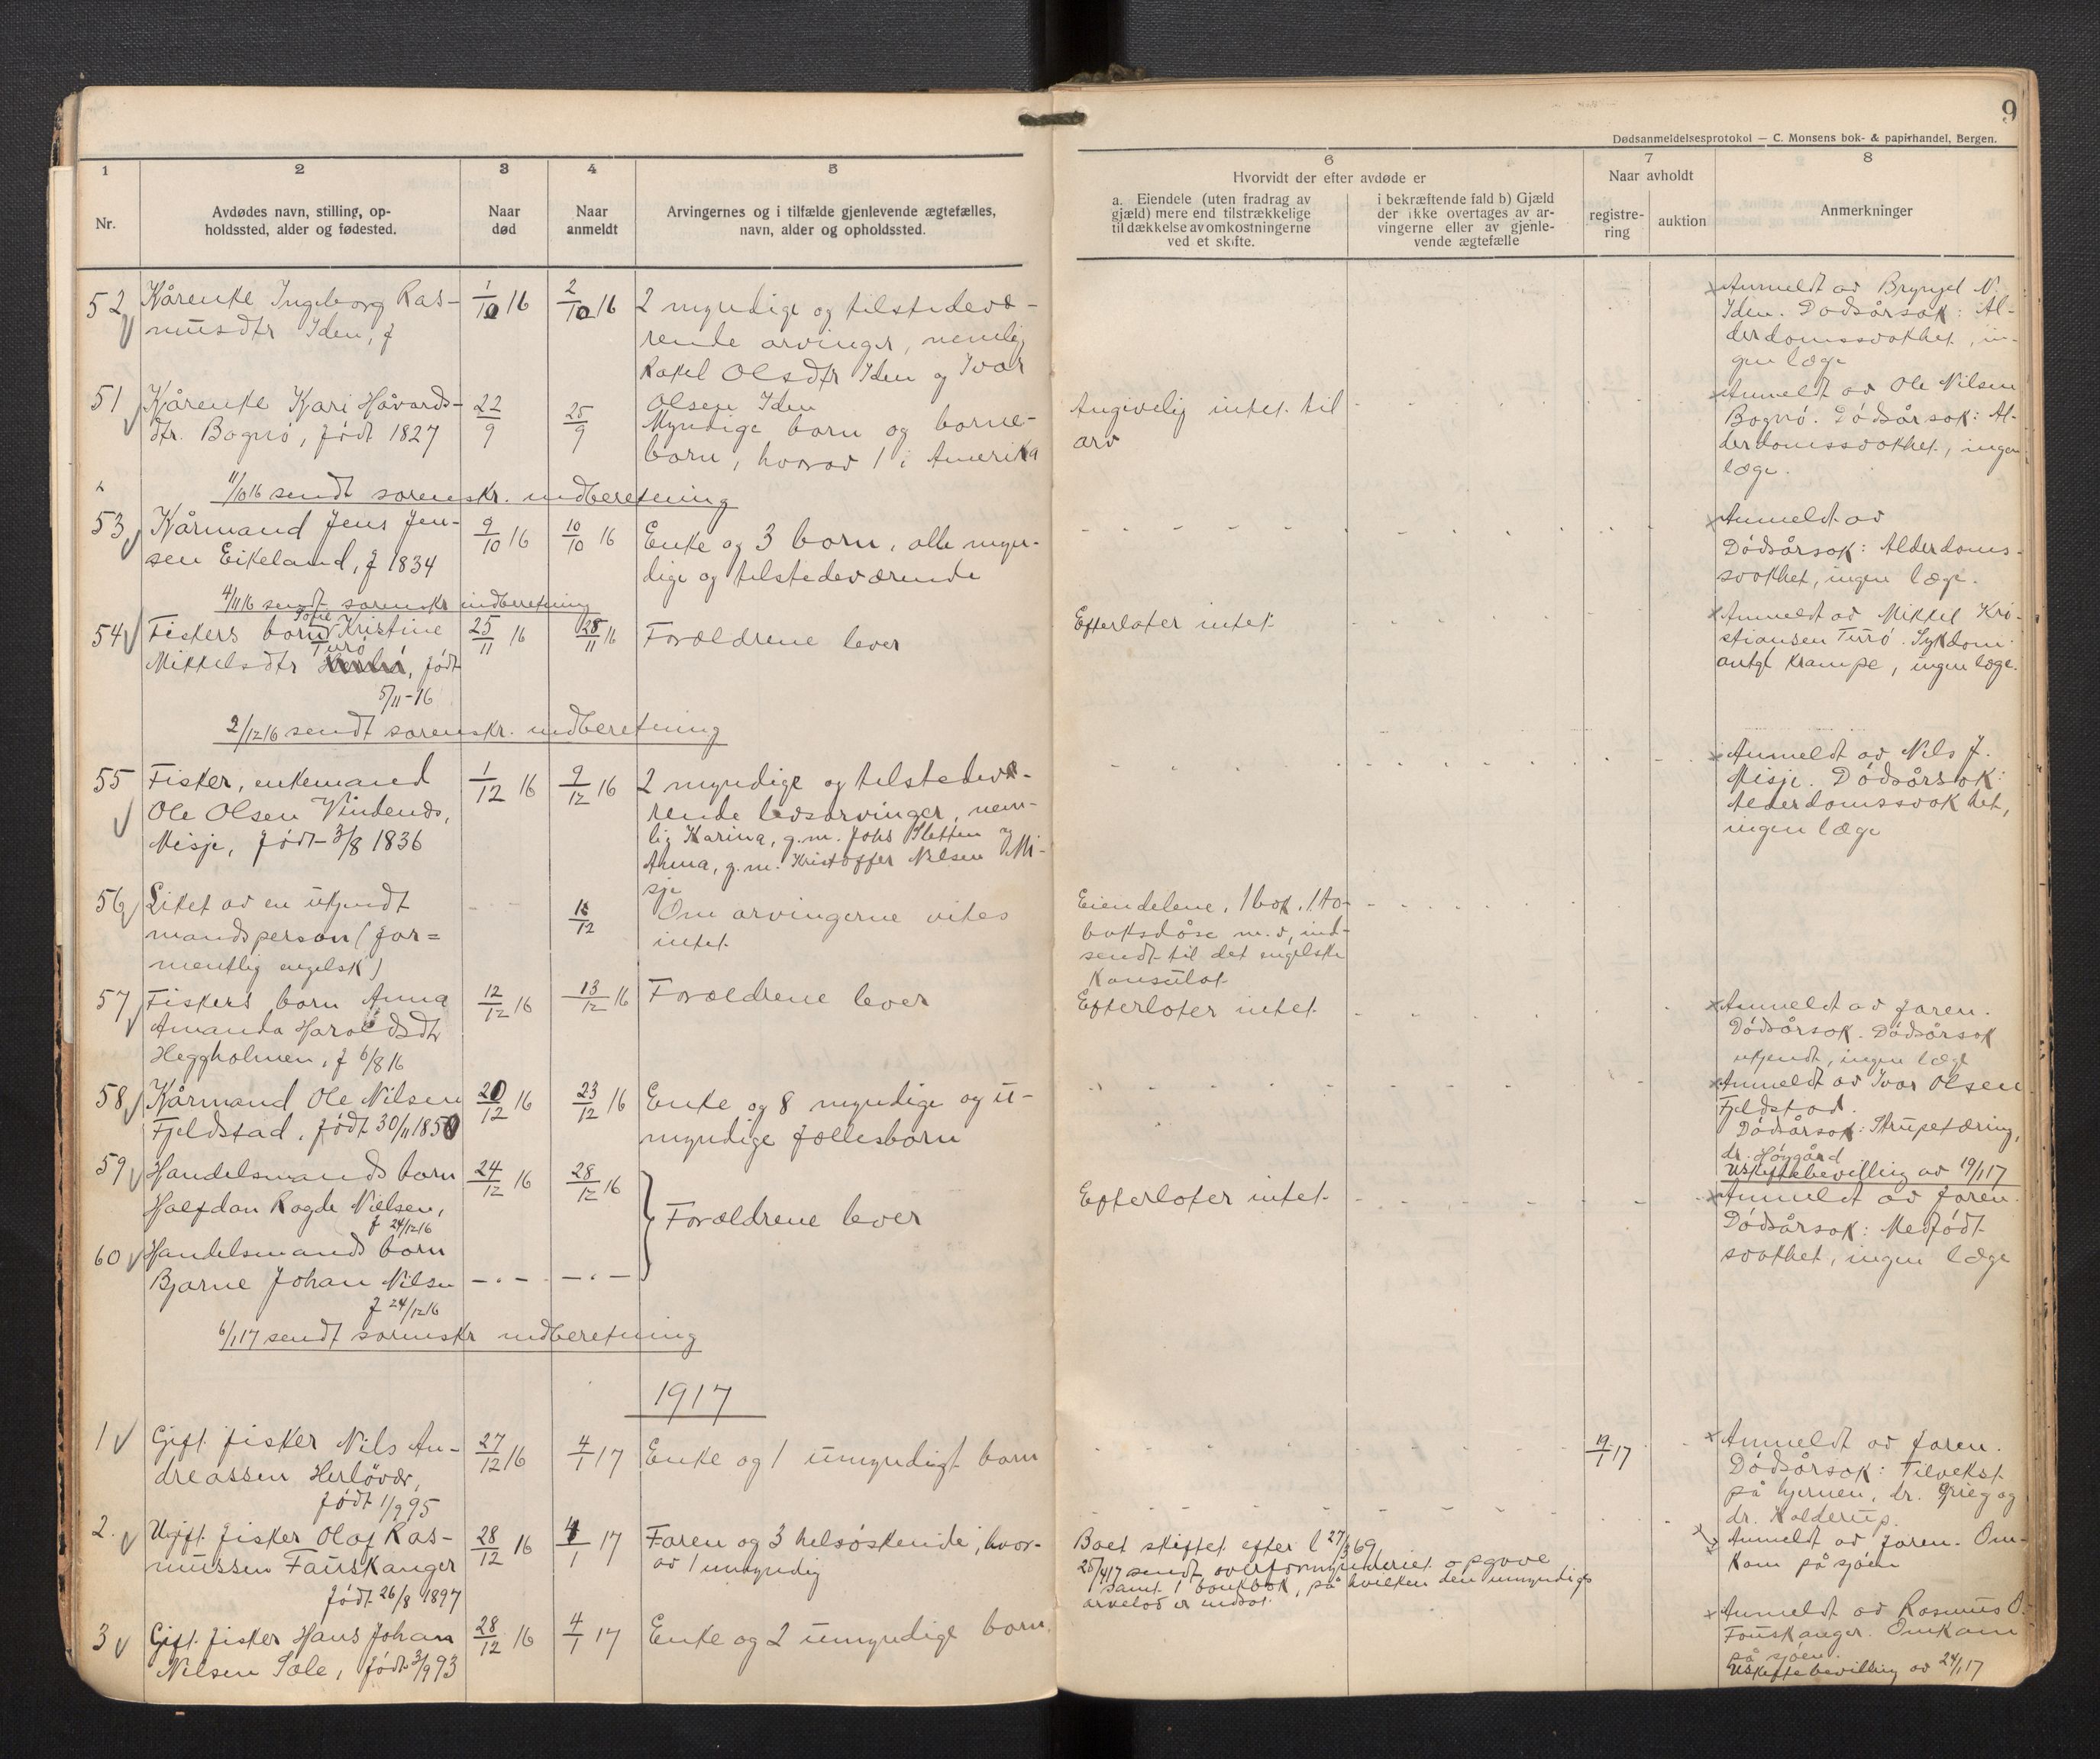 9
Dødsanmeldelsesprotokol — C. Monsens bok- & papirhandel, Bergen.
1
2
3
4
5
Nr.
Avdødes navn, stilling, op-
holdssted, alder og fødested.
Naar
død
Naar
anmeldt
Arvingernes og i tilfælde gjenlevende ægtefælles,
navn, alder og opholdssted.
6
7
8
Hvorvidt der efter avdøde er
a. Eiendele (uten fradrag av
gjæld) mere end tilstrækkelige
til dækkelse av omkostningerne
ved et skifte.
i bekræftende fald b) Gjæld
der ikke overtages av ar-
vingerne eller av gjenle-
vende ægtefælle
Naar avholdt
registre-
ring
auktion
Anmerkninger
52
Kårenke Ingeborg Ras-
musdtr Iden, f
1/10 16
2/10 16
2 myndige og tilstedevæ-
rende arvinger, nemlig
Rakel Olsdtr Iden og Ivar
Olsen Iden
Anmeldt av Bryngel N.
Iden. Dødsårsak: Al-
derdomssvakhet, in-
gen læge
51
Kårenke Kari Håvards-
dtr. Bognø, født 1827
22/9
25/9
Myndige born og borne-
born, hvorav 1 i Amerika
Angivelig intet til
arv
Anmeldt av Ole Nilsen
Bognø. Dödsårsak: Al-
derdomssvakhet, ingen
læge.
11/10 16 sendt sorenskr. indberetning
53
Kårmand Jens Jen-
sen Eikeland, f 1834
9/10 16
10/10 16
Enke og 3 born, alle myn-
dige og tilstedeværende
Anmeldt av
Dödsårsak: Alderdoms-
svakhet, ingen læge.
4/11 16 sendt sorenskr indberetning
54
Fiskers born Sofie Kristine
Mikkelsdtr Turö, født
5/11-16
25/11 16
28/11 16
Forældrene lever
Efterlater intet
Anmeldt av Mikkel Kri-
stiansen Turö. Sykdom
antgl krampe, ingen læge.
2/12 16 sendt sorenskr. indberetning
55
Fisker, enkemand
Ole Olsen Vindenes,
Misje, født 3/8 1836
1/12 16
9/12 16
2 myndige og tilstedevæ-
rende livsarvinger, nem-
lig Karina, g.m. Johs Sletten og
Anna, g.m. Kristoffer Nilsen Mi-
sje
Anmeldt av Nils J.
Misje. Dödsårsak:
Alderdomssvakhet,
ingen læge
56
Liket av en ukjendt
mandsperson (for=
mentlig engelsk)
/12
Om arvingerne vites
intet
Eiendelene, 1 bok, 1 to-
baksdåse m.v, ind-
sendt til det engelske
Konsulat
57
Fiskers born Anna
Amanda Haraldsdtr
Heggholmen, f 6/8 16
12/12 16
13/12 16
Forældrene lever
Efterlater intet
Anmeldt av faren.
Dödsårsak. Dödsårsak
ukjendt, ingen læge
58
Kårmand Ole Nilsen
Fjeldstad, født 30/11 1850
20/12 16
23/12 16
Enke og 8 myndige og u-
myndige fællesborn
Anmeldt av Ivar Olsen
Fjeldstad.
Dödsårsak: Strupetæring,
dr. Höygård
Uskiftebevilling av 19/1 17
59
Handelsmands born
Halfdan Ragde Nielsen,
f 24/12 16
24/12 16
28/12 16
Forældrene lever
Efterlater intet
Anmeldt av faren.
Dödsårsak: Medfödt
svakhet, ingen læge
60
Handelsmands born
Bjarne Johan Nilsen
f 24/12 16
6/1 17 sendt sorenskr indberetning
1917
1
Gift fisker Nils An-
dreassen Herlövær,
født 1/9 95
27/12 16
4/1 17
Enke og 1 umyndigt barn
19/1 17
Anmeldt av faren.
Dödsårsak: Tilvekst
på hjernen, dr. Grieg og
dr. Kolderup.
2.
Ugift fisker Olaf Ras-
mussen Fauskanger
født 26/8 1897
28/12 16
4/1 17
Faren og 3 helsöskende, hvor-
av 1 umyndig
Boet skiftet efter l 27/3 69,
25/4 17 sendt overformynderiet opgave
samt 1 bankbok, på hvilken den umyndiges
arvelod er indsat.
Anmeldt av faren. Om-
kom på sjöen
3
Gift fisker Hans Johan
Nilsen Sæle, født 3/9 93
28/12 16
4/1 17
Enke og 2 umyndige born
Anmeldt av Rasmus O.
Fauskanger. Omkom
på sjöen.
Uskiftebevilling av 24/1 17